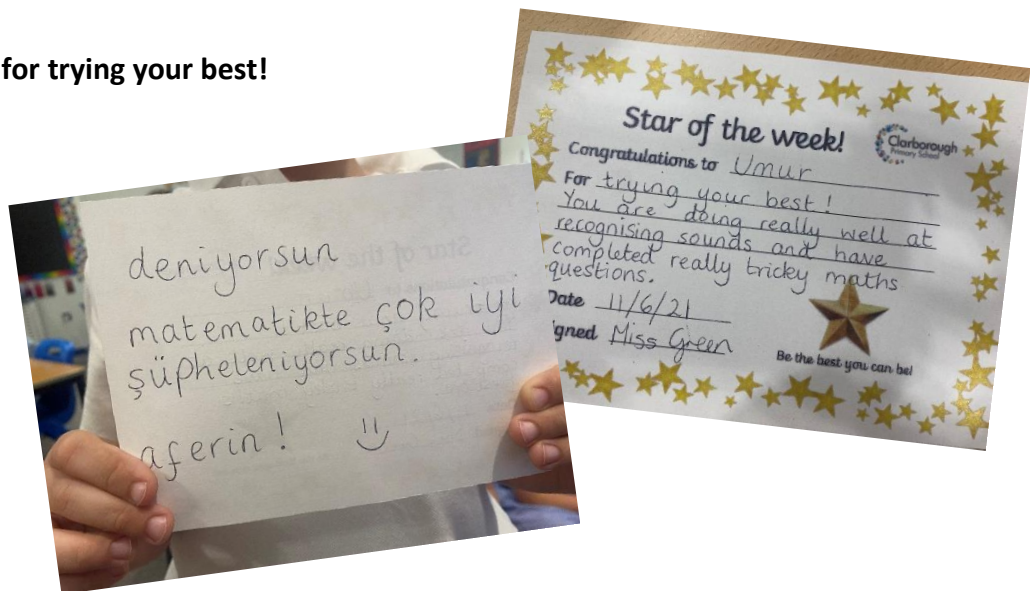 for trying your best!
deniyorsun
matematikte çok iyi
şüpheleniyorsun.
aferin!
Star of the week!
Clarborough
Primary School
Congratulations to Umur
For trying your best!
You are doing really well at
recognising sounds and have
completed really tricky maths
questions.
Date 11/6/21
igned Miss Green
Be the best you can be!